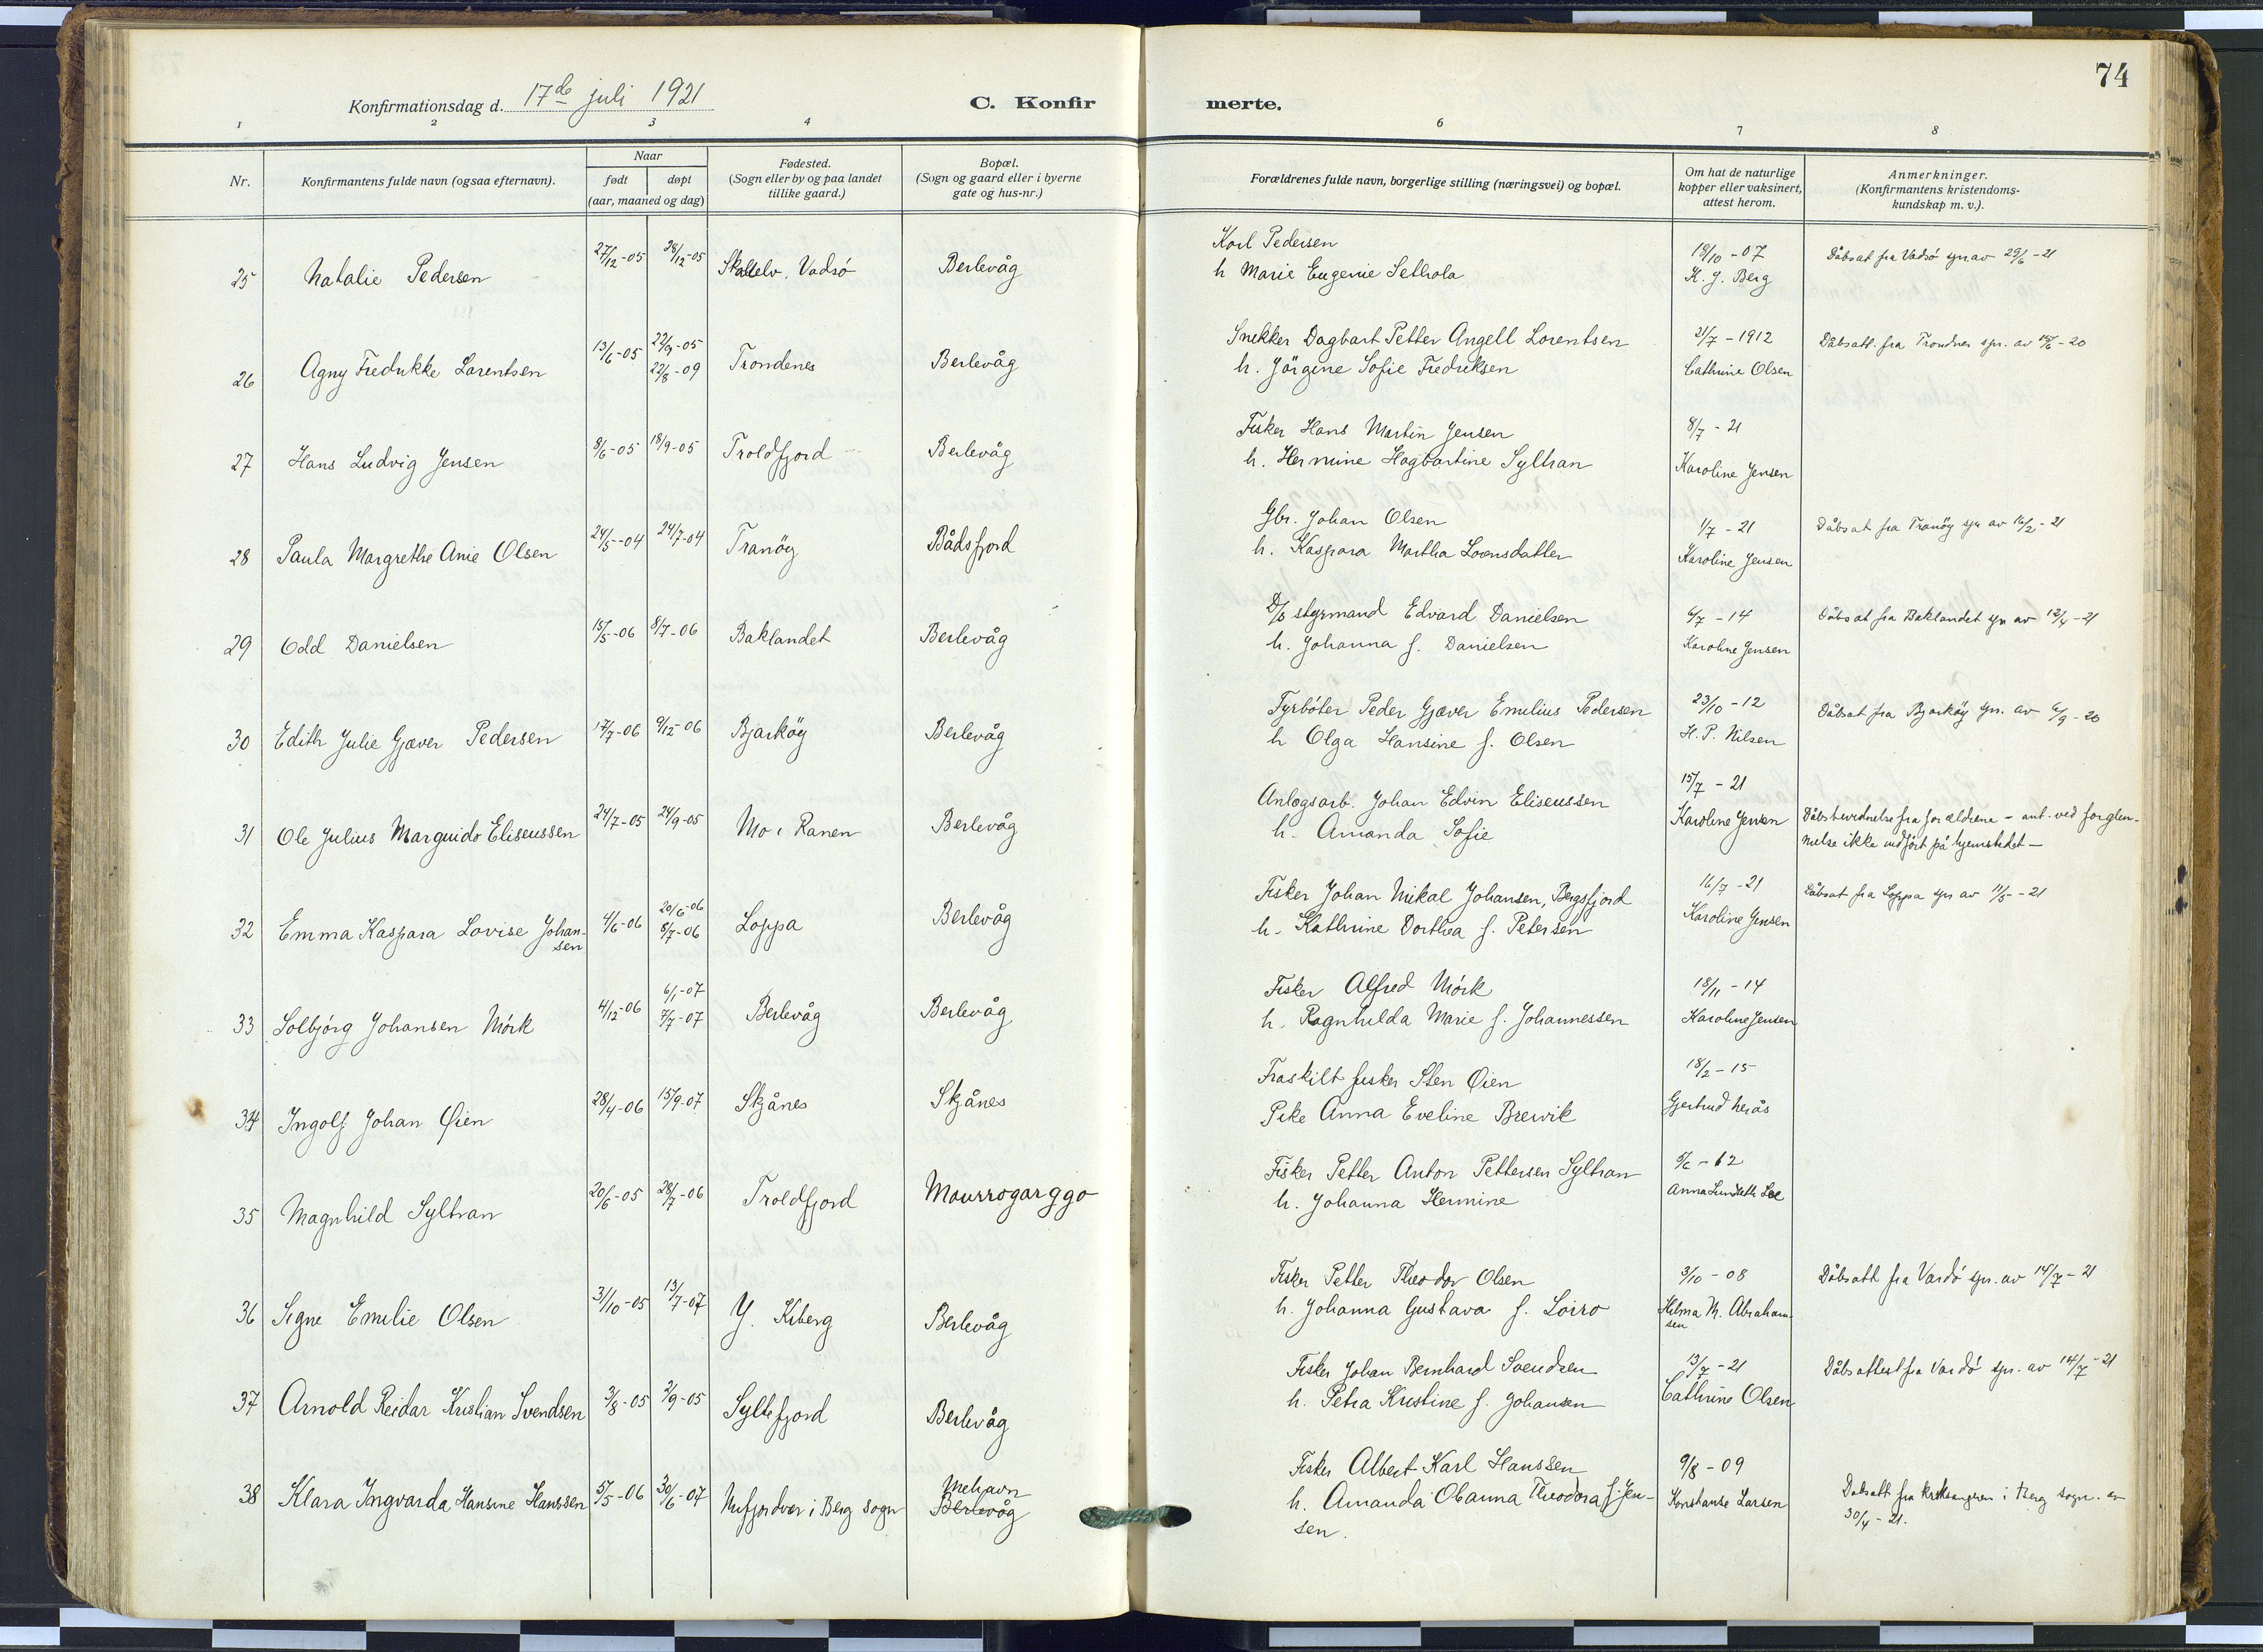 74
Konfirmationsdag d. 17de juli 1921
C. Konfir
merte.
1 2 3 4 6 7 8
Nr.
Konfirmantens fulde navn (ogsaa efternavn).
Naar
født døpt
(aar, maaned og dag)
Fødested.
(Sogn eller by og paa landet
tillike gaard.)
Bopæl.
(Sogn og gaard eller i byerne
gate og hus-nr.)
Forældrenes fulde navn, borgerlige stilling (næringsvei) og bopæl.
Om hat de naturlige
kopper eller vaksinert,
attest herom.
Anmerkninger.
(Konfirmantens kristendoms-
kundskap m. v.).
25 Natalie Pedersen 27/12-05 28/12-05 Skallelv, Vadsö Berlevåg
Karl Pedersen
h Marie Eugenie Sethola
19/10-07
K. J. Berg
Dåbsat fra Vadsö spr av 29/6-21
26 Agny Fredrikke Lorentsen 13/6-05 22/9-05 Trondenes Berlevåg
22/8-09
Snekker Dagbart Petter Angell Lorentsen
h. Jörgine Sofie Fredriksen
21/7-1912
Cathrine Olsen
Dåbsatt. fra Trondnes spr. av
27 Hans Ludvig Jensen 8/6-05 18/9-05 Troldfjord Berlevåg
Fisker Hans Martin Jensen
h. Hermine Hagbartine Syltran
8/7-21
Karoline Jensen
28 Paula Margrethe Anie Olsen 24/5-04 24/7-04 Tranöy Bådsfjord
Gbr. Johan Olsen
h. Kaspara Martha Lorensdatter
1/7-21
Karoline Jensen
Dåbsat fra Tranöy spr av 16/2-21
29 Odd Danielsen 15/5-06 8/7-06 Baklandet Berlevåg
D/S styrmand Edvard Danielsen
h. Johanna f. Danielsen
6/7-14
Karoline Jensen
Dåbsat fra Baklandet spr av 12/4-21
30 Edith Julie Gjæver Pedersen 17/7-06 9/12-06 Bjarköy Berlevåg
Fyrböter Peder Gjæver Emilius Pedersen
h Olga Hansine f. Olsen
23/10-12
H. P. Nilsen
Dåbsat fra Bjarköy spr. av 6/9-20
31 Ole Julius Marguido Eliseussen 24/7-05 24/9-05 Mo i Ranen Berlevåg
Anlægsarb. Johan Edvin Eliseussen
h. Amanda Sofie
15/7-21
Karoline Jensen
Dåbsbevidnelse fra forældrene - ant. ved forglem-
melse ikke indfört på hjemstedet -
32 Emma Kaspara Lovise Johan-
sen 4/6-06 20/6-06 Loppa Berlevåg
8/7-06
Fisker Johan Mikal Johansen, Bergsfjord
h. Kathrine Dorthea f. Petersen
16/7-21
Karoline Jensen
Dåbsat fra Loppa spr av 11/5-21
33 Solbjörg Johansen Mörk 4/12-06 6/1-07 Berlevåg Berlevåg
7/7-07
Fisker Alfred Mörk
h. Ragnhilda Marie f. Johannessen
18/11-14
Karoline Jensen
34 Ingolf Johan Øien 28/4-06 15/9-07 Skjånes Skjånes
Fraskilt fisker Sten Øien
Pike Anna Eveline Brevik
18/2-15
Gjertrud
35 Magnhild Syltran 20/6-05 28/7-06 Troldfjord Mourrogarggo
Fisker Petter Anton Pettersen Syltran
h. Johanna Hermine
Anna
36 Signe Emilie Olsen 3/10-05 13/7-07 Y. Kiberg Berlevåg
Fisker Petter Theodor Olsen
h. Johanna Gustava f. Loiro
3/10-08
Hilma M. Abraham-
sen
Dåbsatt fra Vardö spr. av 14/7-21
37 Arnold Reidar Kristian Svendsen 3/8-05 2/9-05 Syltefjord Berlevåg
Fisker Johan Bernhard Svendsen
h. Petra Kristine f. Johansen
13/7-21
Cathrine Olsen
Dåbsattest fra Vardö spr. av 14/7-21
38 Klara Ingvarda Hansine Hanssen 5/5-06 30/6-07 Mefjordvær i Berg sogn Mehavn
Berlevåg
Fisker Albert Karl Hanssen
h. Amanda Oianna Theodora f. Jen-
sen.
9/8-09
Konstanse Larsen
Dåbsatt fra i Berg sogn. av
30/4-21.